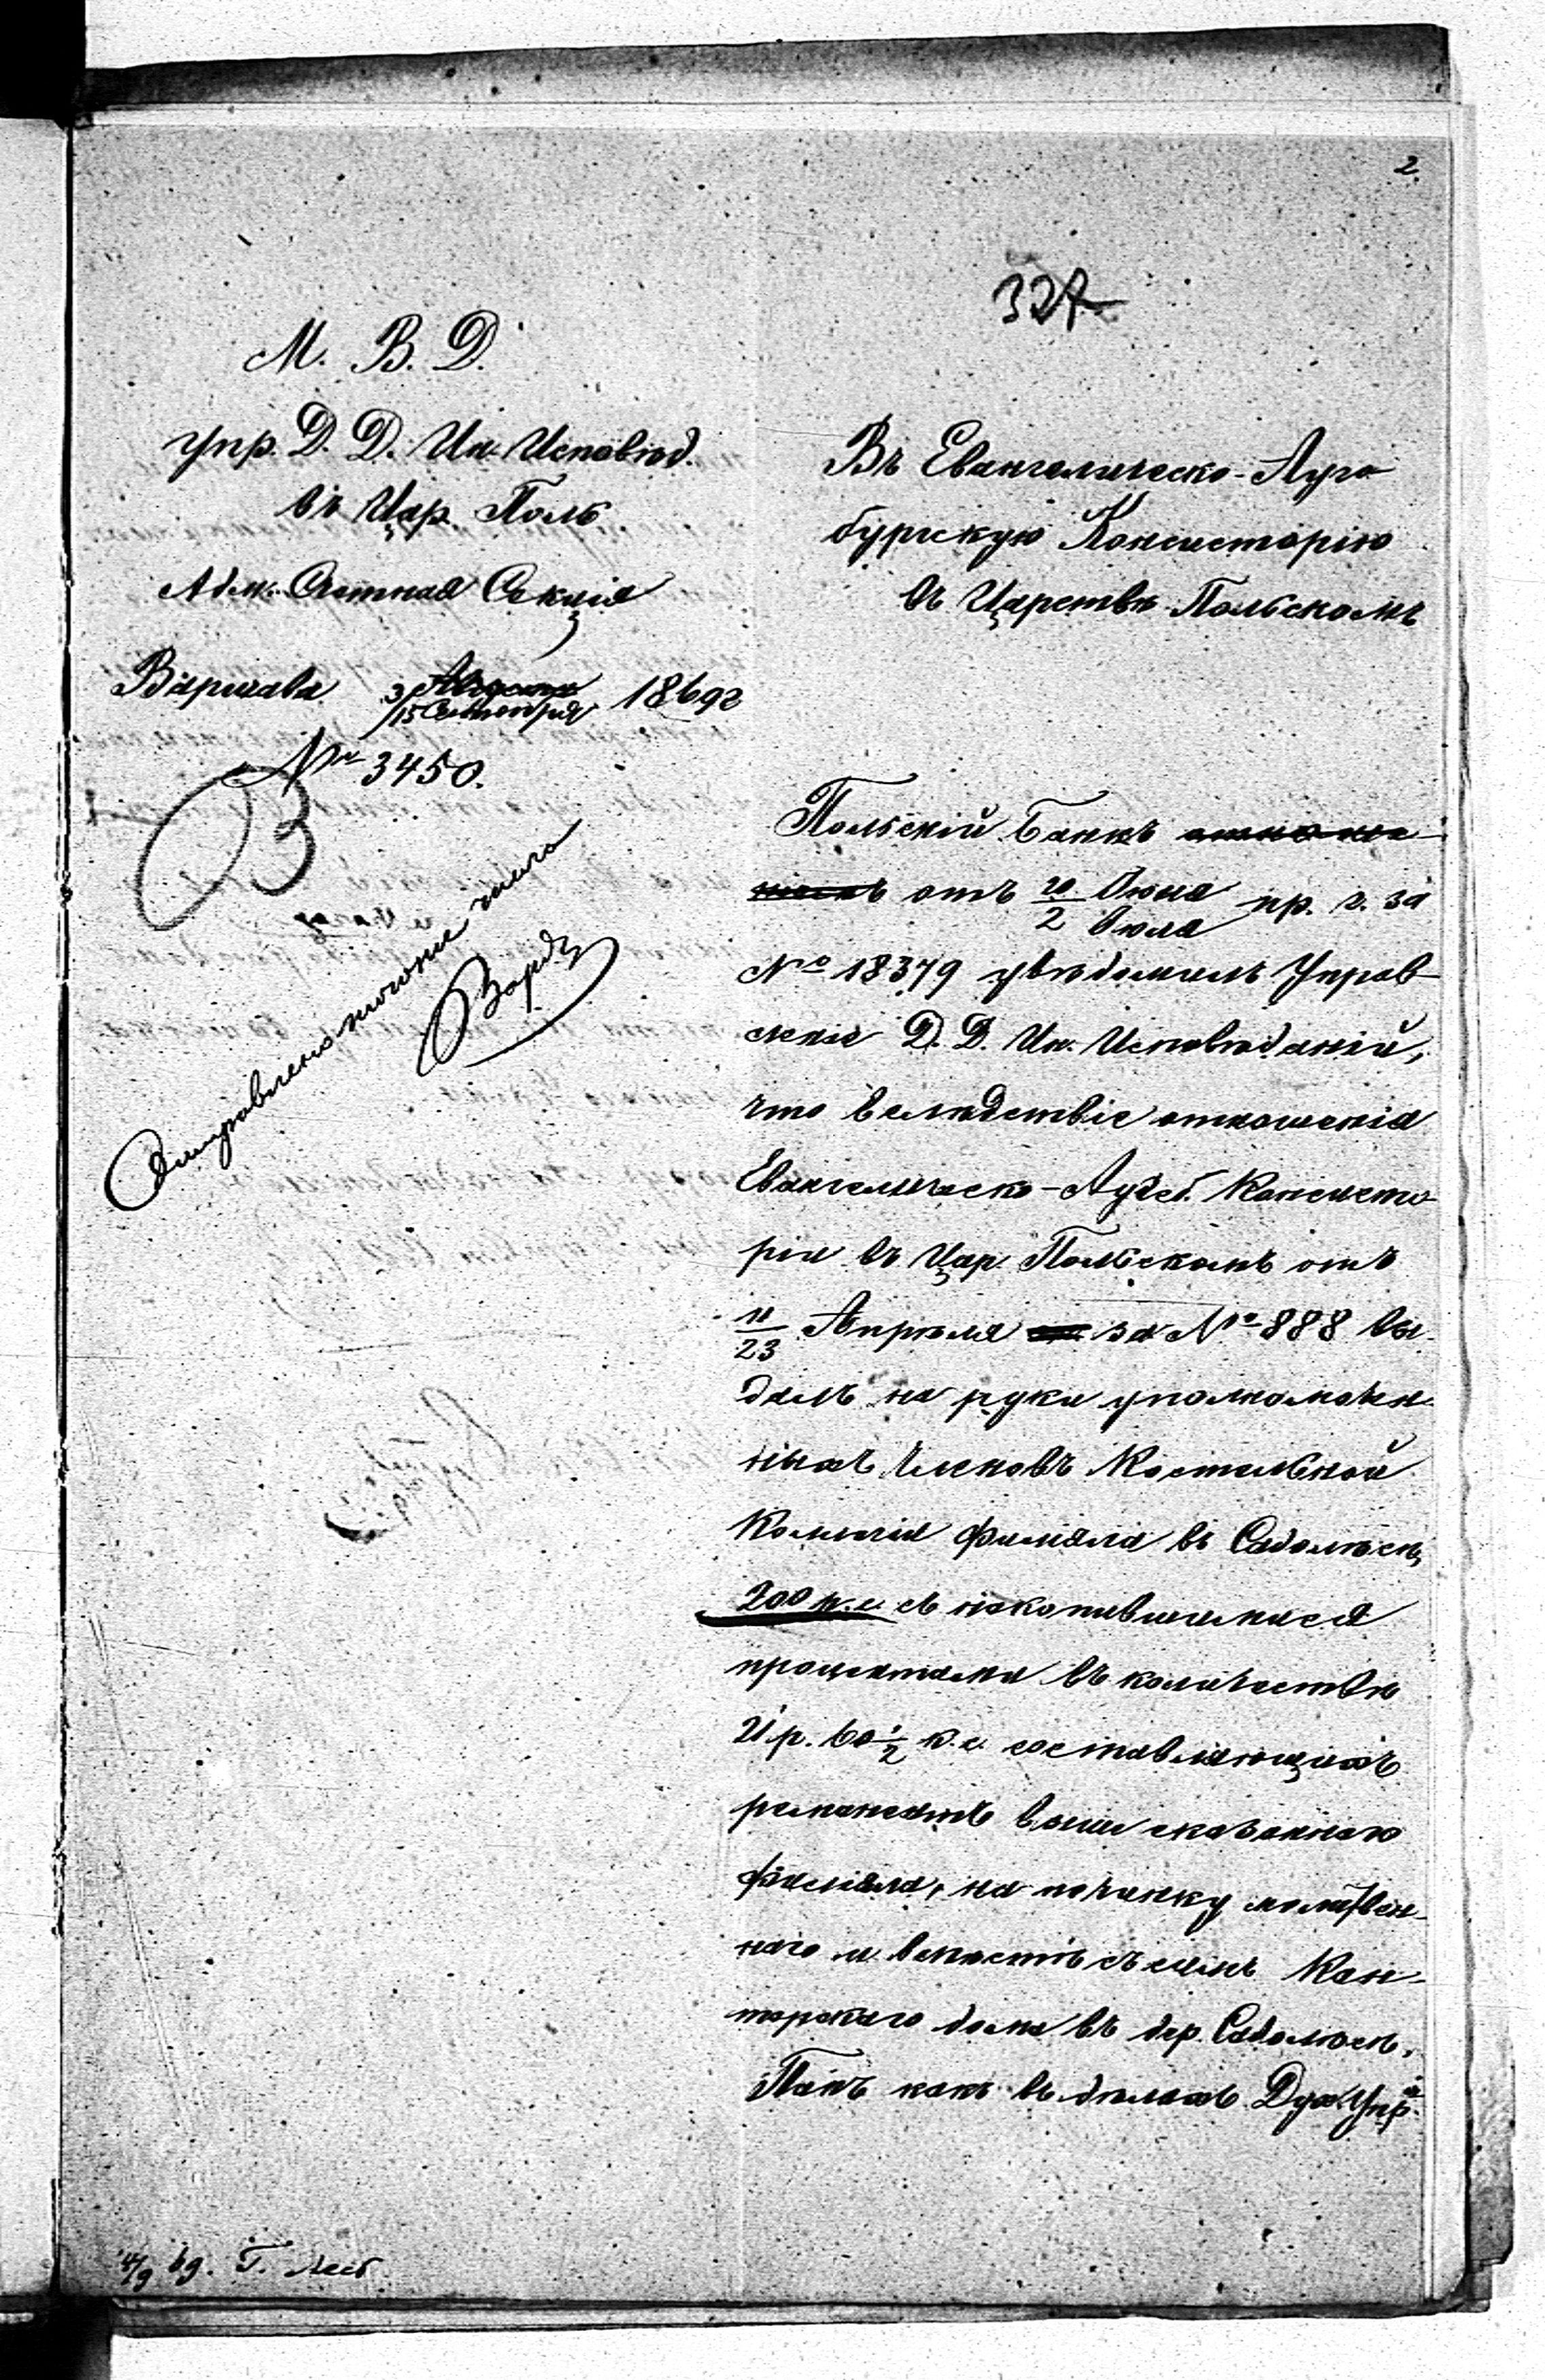 2
327
М. В. Д.
Упр. Д. Д. Ин. Исповѣд.
въ Цар. Поль.
Адм. Счетная Секція
Варшава 3/15 Августа Сентября 1869 г
№ 3450.
В
Въ Евангелическо-Аугс
бургскую Консисторію
въ Царствѣ Польскомъ
Польскій Банкъ
отъ 20 Іюня / 2 Іюля пр. г. за
№ 18379 увѣдомилъ Управ
леніе Д. Д. Ин. Исповѣданій,
что вслѣдствіе отношенія
Евангелическо-Аугсб. Консисто
ріи въ Цар. Польскомъ отъ
11/23 Апрѣля за № 888 вы-
далъ на руки уполномочен
ныхъ членовъ Костельной
Коллегіи филіала въ
200 р. с. съ накопившимися
процентами въ количествѣ
21 р. 60 1/2 к. с. составляющихъ
ремонентъ выше сказаннаго
филіала, на починку молитвен-
наго и вмѣстѣ съ симъ Кан-
торскаго дома въ дер.
Такъ какъ въ дѣлахъ Дух. Упр.
Отправлено того же числа
69. Г.